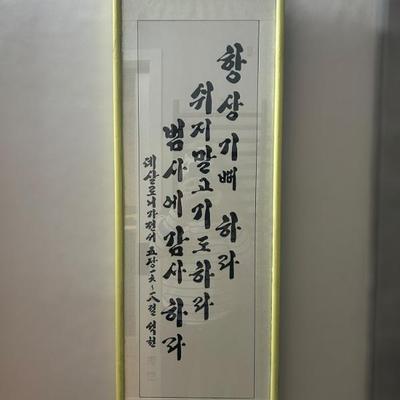 항상 기뻐 하라
쉬지말고 기도하라
범사에 감사하라
데살로니가전서 五장 一六~一八절 석헌